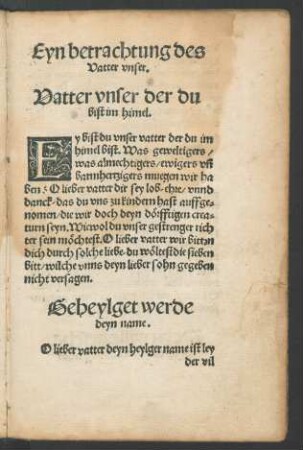 Eyn betrachtung des
Vatter vnser.
Vatter vnser der du
bist im himel.
Ey bist du vnser vatter der du im
himel bist. Was geweltigers/
was almechtigers/ewigers vñ
barmhertzigers muegen wir ha
ben? O lieber vatter dir sey lob/ehre/vnnd
danck/das du vns zu kindern hast auffge-
nomen/die wir doch deyn dörfftigen crea-
turen seyn. Wiewol du vnser gestrenger rich
ter sein möchtest. O lieber vatter wir bitten
dich durch solche liebe/du wöltest die sieben
bitt/wilche vnns deyn lieber sohn gegeben
nicht versagen.
Geheylget werde
deyn name.
O lieber vatter deyn heylger name ist ley
der vil